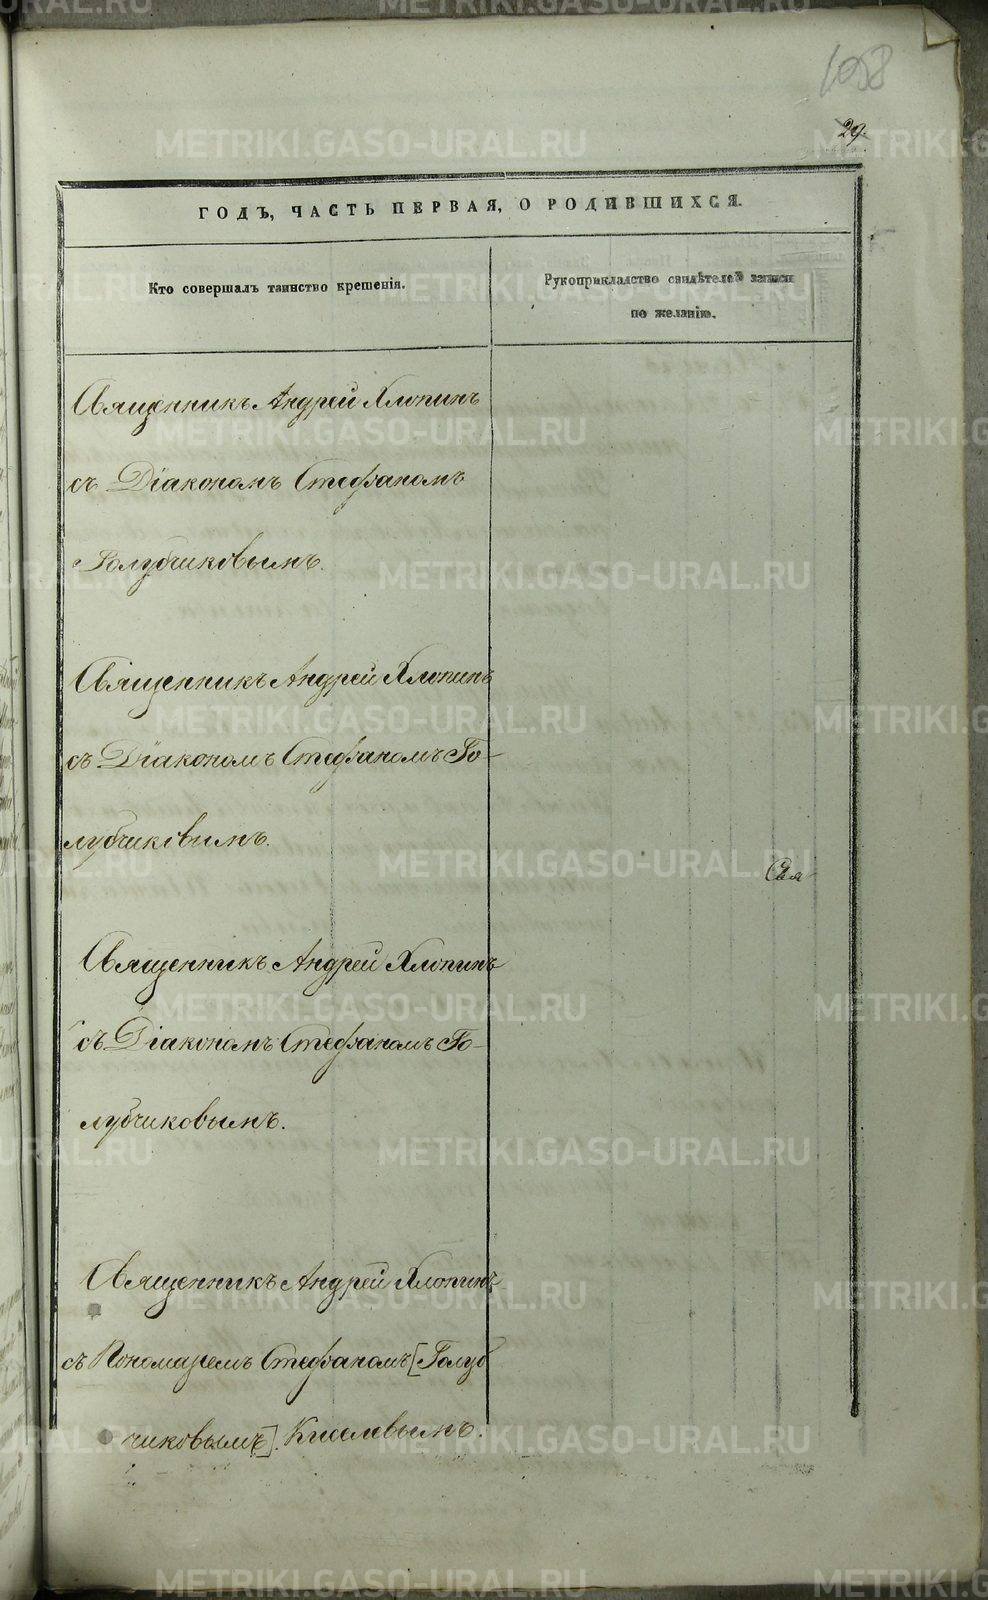 1058
29.
ГОДЪ, ЧАСТЬ ПЕРВАЯ, О РОДИВШИХСЯ.
Кто совершалъ таинство крещенія.
Рукоприкладство свидѣтелей записи
по желанію.
Священникъ Андрей Хлопинъ
съ Діакономъ Стефаномъ
Голубчиковымъ.
Священникъ Андрей Хлопинъ
съ Діакономъ Стефаномъ Го-
лубчиковымъ.
Священникъ Андрей Хлопинъ
съ Діакономъ Стефаномъ Го-
лубчиковымъ.
Священникъ Андрей Хлопинъ
съ Пономаремъ Стефаномъ [Голуб
чиковымъ]. Киселевымъ.
METRIKI.GASO-URAL.RU